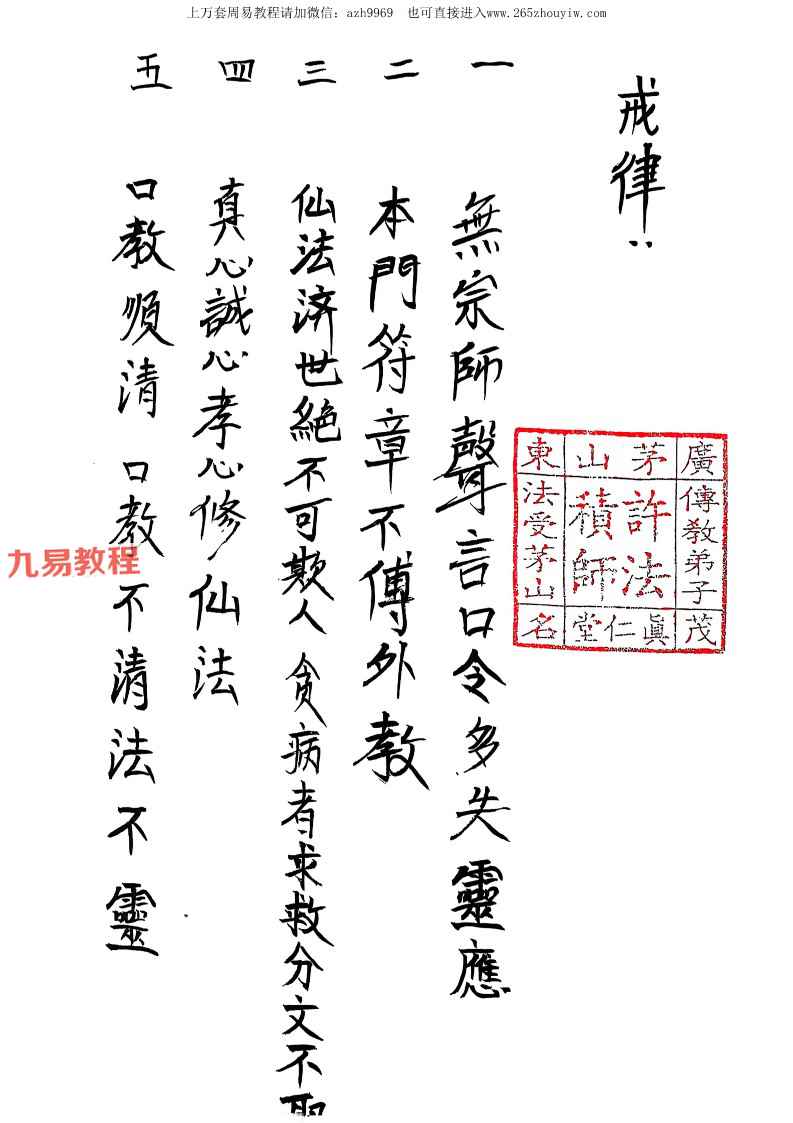 上万套周易教程请加微信：azh9969　也可直接进入www.265zhouyiw.com
戒律：
一　無宗師聲言口令多失靈應
二　本門符章不傳外教
三　仙法济世絕不可欺人　貧病者求救分文不取
四　真心誠心孝心修仙法
五　口教順清　口教不清法不靈
廣傳教弟子茂
茅山許法積師眞仁堂
東法受茅山名
九易教程